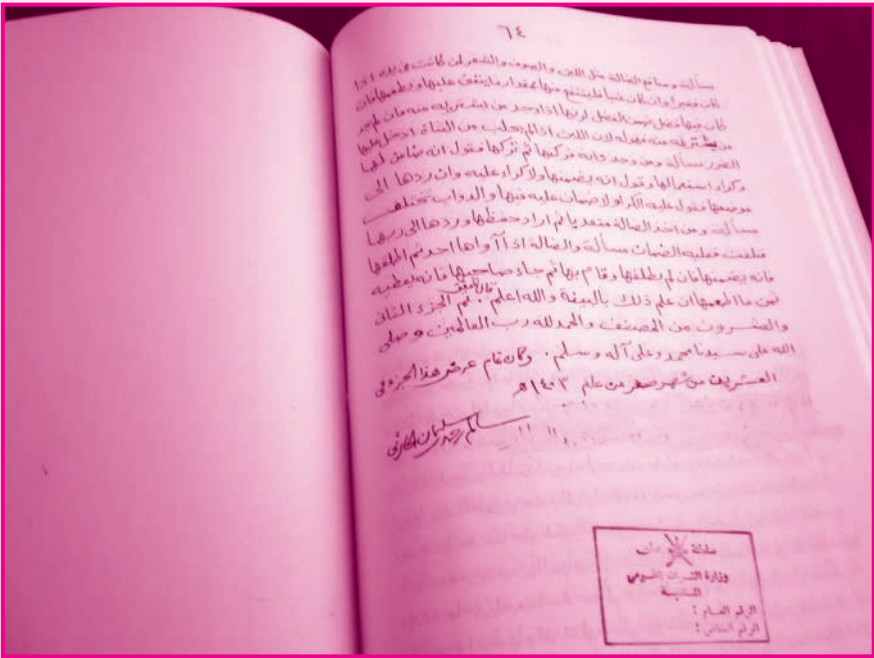 ٦٤
مسألة ومنافع الضالة مثل اللبن والصوف والشعر لمن كانت في يده اذا
كان فقيرا وان كان غنيا فلينتفع منها بمقدار ما ينفق عليها ويطعمها فان
كان فيها فضل فهو الفضل لربها اذا وجد من يشتريه منه فان لم يجد
من يشتريه منه فهو له لان اللبن اذا لم يحلب من الشاة ادخل عليها
الضرر مسألة ومن وجد دابة فركبها ثم تركها فقول انه ضامن لها
وكراء استعمالها وقول انه يضمنها ولا كراء عليه وان ردها الى
موضعها فقول عليه الكراء ولا ضمان عليه فيها والدواب تختلف
مسألة ومن اخذ الضالة متعديا ثم اراد حفظها وردها الى ربها
فتلفت فعليه الضمان مسألة والضالة اذا آواها احد ثم اطلقها
فانه يضمنها فان لم يطلقها وقام بها ثم جاء صاحبها فانه يعطيه
ثمن ما اطعمها ان علم ذلك بالبينة والله اعلم. تم الجزء الثاني
والعشرون من المصنف والحمد لله رب العالمين وصلى
الله على سيدنا محمد وعلى آله وسلم. وكان تمام عرض هذا الجزء في
العشرين من شهر صفر من عام ١٤٠٣ هـ
سالم بن حمد بن سليمان الحارثي
سلطنة عمان
وزارة التراث القومي
المكتبة
الرقم العام :
الرقم الخاص :